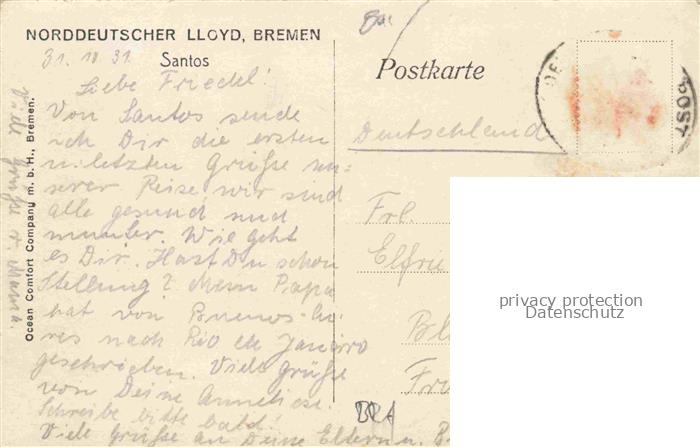 NORDDEUTSCHER LLOYD, BREMEN
31. 10. 31.
Santos
Liebe Friedel!
Von Santos sende
ich Dir die ersten
u. letzten Grüße un-
serer Reise wir sind
alle gesund und
munter. Wie geht
es Dir. Hast Du schon
Stellung? Mein Papa
hat von Buenos-Ai-
res nach Rio de Janeiro
geschrieben. Viele Grüße
von Deine Anneliese.
Schreibe bitte bald!
Viele Grüße an Deine Eltern u. B
Viele Grüße v. Mama.
Ocean Comfort Company m. b. H., Bremen.
Postkarte
Deutschland
POST
Frl.
Elfrie
Bl
Fr
BRA
privacy protection
Datenschutz